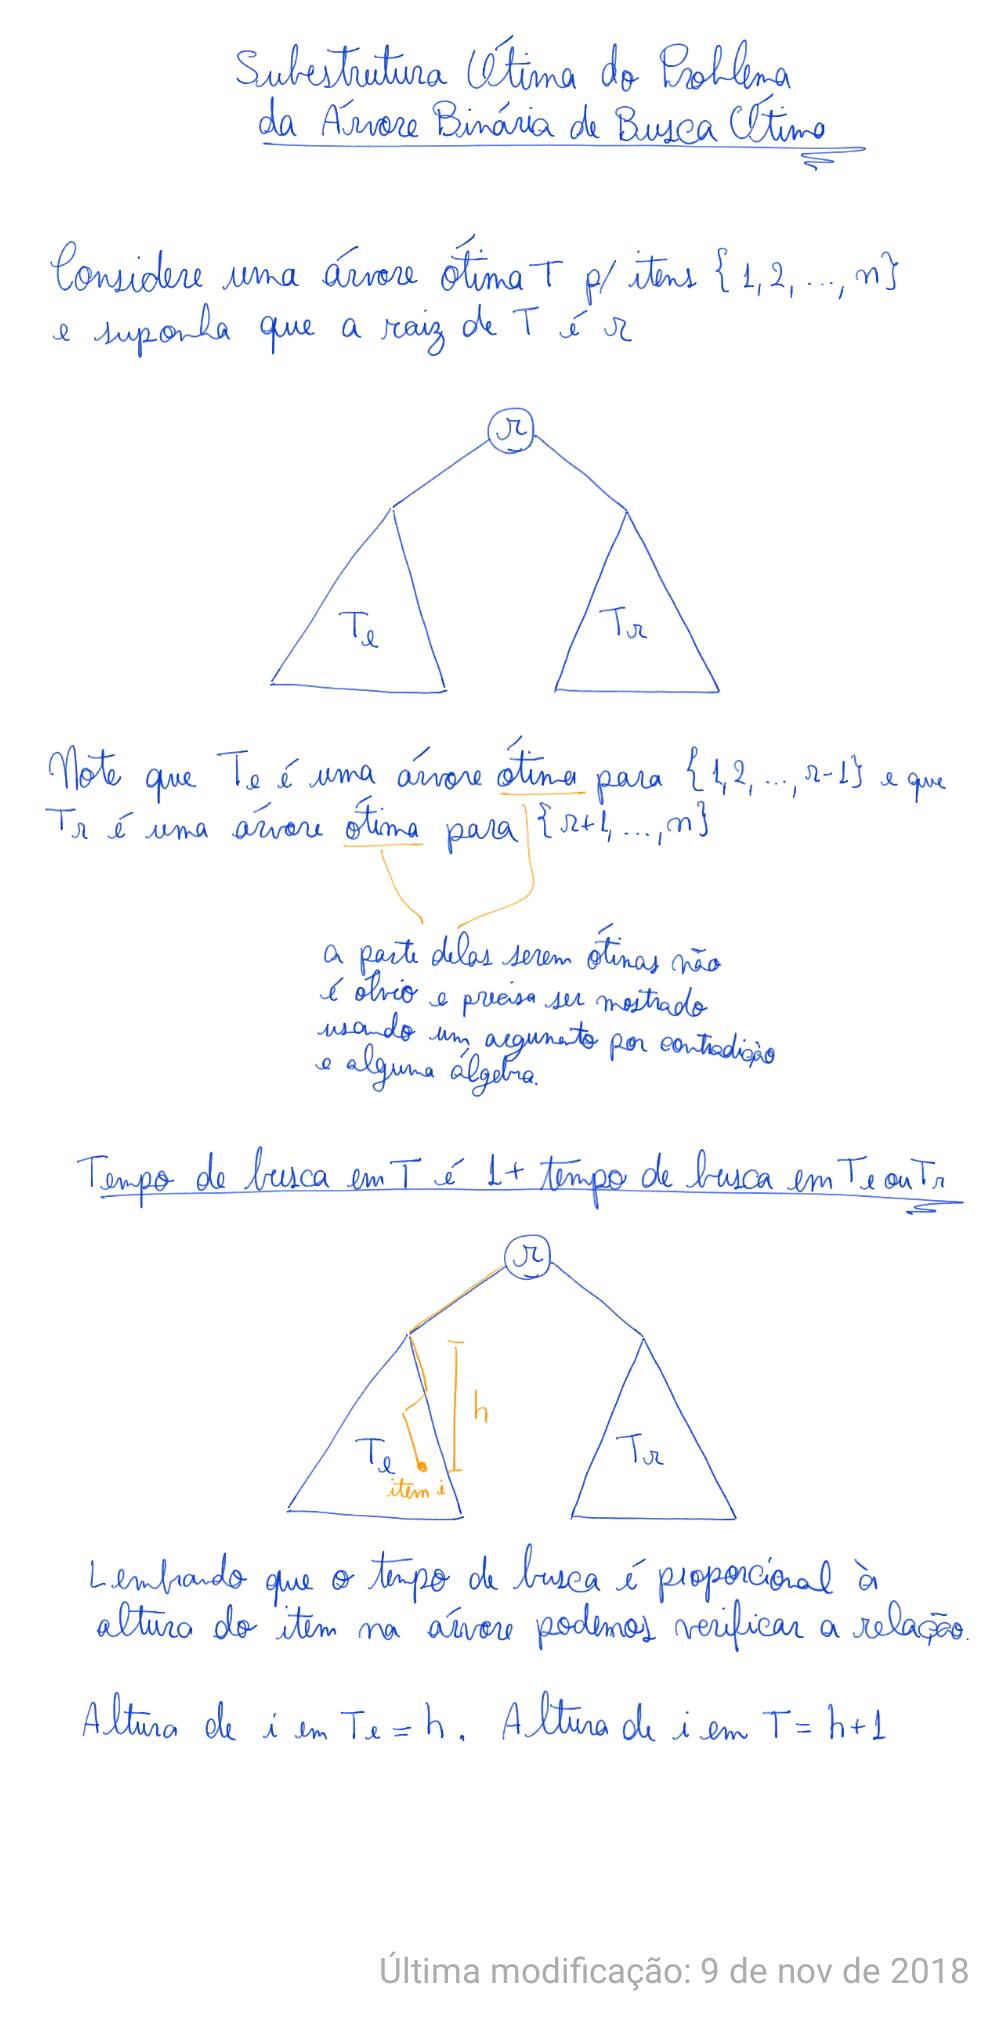 Subestrutura Ótima do Problema
da Árvore Binária de Busca Ótima
Considere uma árvore ótima T p/ itens {1,2, ..., n}
e suponha que a raiz de T é r
r
Tl
Tr
Note que Tl é uma árvore ótima para {1,2, ..., r-1} e que
Tr é uma árvore ótima para {r+1, ..., n}
a parte delas serem ótimas não
é óbvio e precisa ser mostrado
usando um argumento por contradição
e alguma álgebra.
Tempo de busca em T é 1 + tempo de busca em Tl ou Tr
r
h
Tl
Tr
item i
Lembrando que o tempo de busca é proporcional à
altura do item na árvore podemos verificar a relação.
Altura de i em Tl = h. Altura de i em T = h+1
Última modificação: 9 de nov de 2018